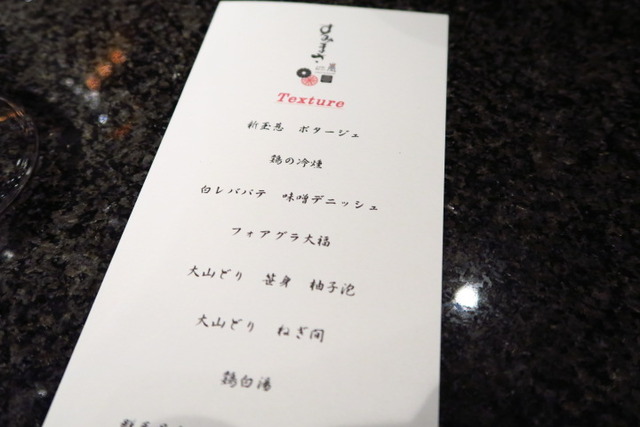 Texture
新玉葱 ポタージュ
鶏の冷燻
白レバパテ 味噌デニッシュ
フォアグラ大福
大山どり 笹身 柚子泡
大山どり ねぎ間
鶏白湯